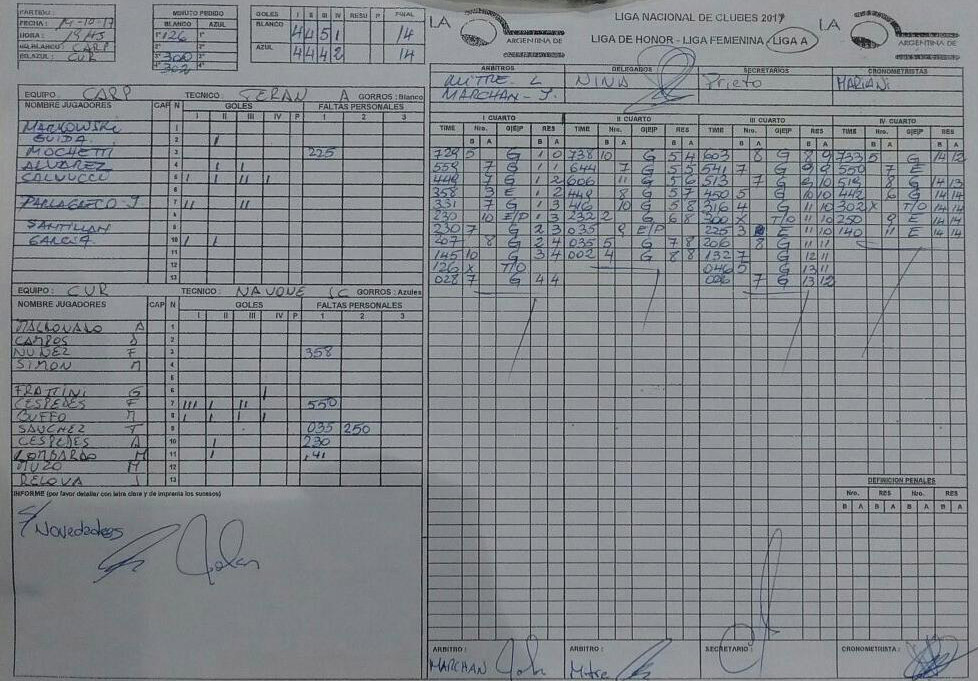 PARTIDO :
FECHA : 14-10-17
HORA : 19 HS
EQ.BLANCO : CARP
EQ.AZUL : CUR
MINUTO PEDIDO
BLANCO AZUL
1° 126 1°
2° 2°
3° 300 3°
4° 302 4°
GOLES I II III IV RESU P FINAL
BLANCO 4 4 5 1 14
AZUL 4 4 4 2 14
LA
ARGENTINA DE
LIGA NACIONAL DE CLUBES 2017
LIGA DE HONOR - LIGA FEMENINA - LIGA A
LA
ARGENTINA DE
ARBITROS DELEGADOS SECRETARIOS CRONOMETRISTAS
MITRE L NINA Prieto MARIANI
MARCHAN J.
EQUIPO : CARP TECNICO : TERAN A GORROS : Blanco
NOMBRE JUGADORES CAP N GOLES FALTAS PERSONALES
I II III IV P 1 2 3
MARKOWSKI 1
GUIDA 2
MOCHETTI 3 225
ALVAREZ 4
CALVUCCI 5
6
7
8
SANTILLAN 9
GARCIA 10
11
12
13
EQUIPO : CUR TECNICO : GORROS : Azules
NOMBRE JUGADORES CAP N GOLES FALTAS PERSONALES
I II III IV P 1 2 3
MALDONADO A 1
CAMPOS 2
NUÑEZ F 3 358
SIMON M 4
5
FRATTINI G 6
CESPEDES F 7 550
BUFFO M 8
SANCHEZ T 9 035 250
CESPEDES A 10 230
LOMBARDO M 11 141
MUZO M 12
RELOVA J 13
INFORME (por favor detallar con letra clara y de imprenta los sucesos)
S/Novedades
I CUARTO II CUARTO III CUARTO IV CUARTO
TIME Nro. G|E|P RES TIME Nro. G|E|P RES TIME Nro. G|E|P RES TIME Nro. G|E|P RES
B A B A B A B A B A B A B A B A
729 5 G 1 0 738 10 G 5 4 603 8 G 8 9 733 5 G 14 12
559 7 G 1 1 644 7 G 5 5 541 7 G 9 9 550 7 E
449 7 G 1 2 606 11 G 5 6 513 7 G 9 10 518 8 G 14 13
358 3 E 1 2 449 8 G 5 7 450 5 G 10 10 442 6 G 14 14
331 7 G 1 3 416 10 G 5 8 316 4 G 11 10 302 X T/O 14 14
230 10 E/P 1 3 232 2 G 6 8 300 X T/O 11 10 250 9 E 14 14
230 7 G 2 3 035 9 E/P 225 3 E 11 10 140 11 E 14 14
207 8 G 2 4 035 5 G 7 8 206 8 G 11 11
145 10 G 3 4 002 4 G 8 8 132 7 G 12 11
126 X T/O 046 5 G 13 11
028 7 G 4 4 006 7 G 13 12
DEFINICION PENALES
Nro. RES Nro. RES
B A B A B A B A
ARBITRO : ARBITRO : SECRETARIO : CRONOMETRISTA :
MARCHAN Mitre